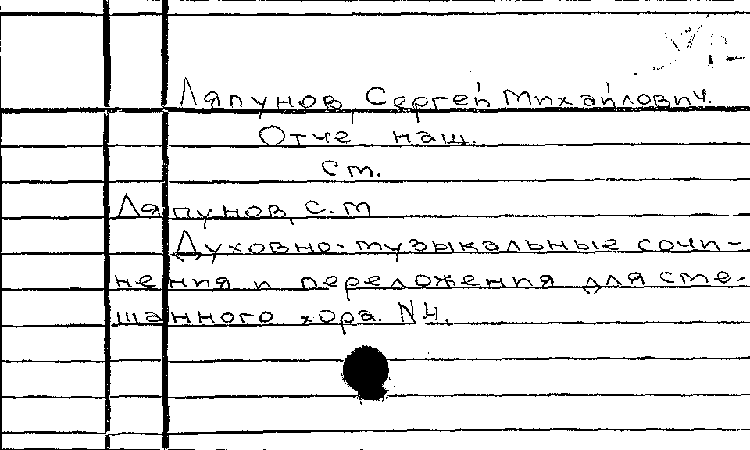 Ляпунов, Сергей Михайлович.
Отче наш.
см.
Ляпунов, С.М
Духовно-музыкальные сочи-
нения и переложения для сме-
шанного хора. N4.